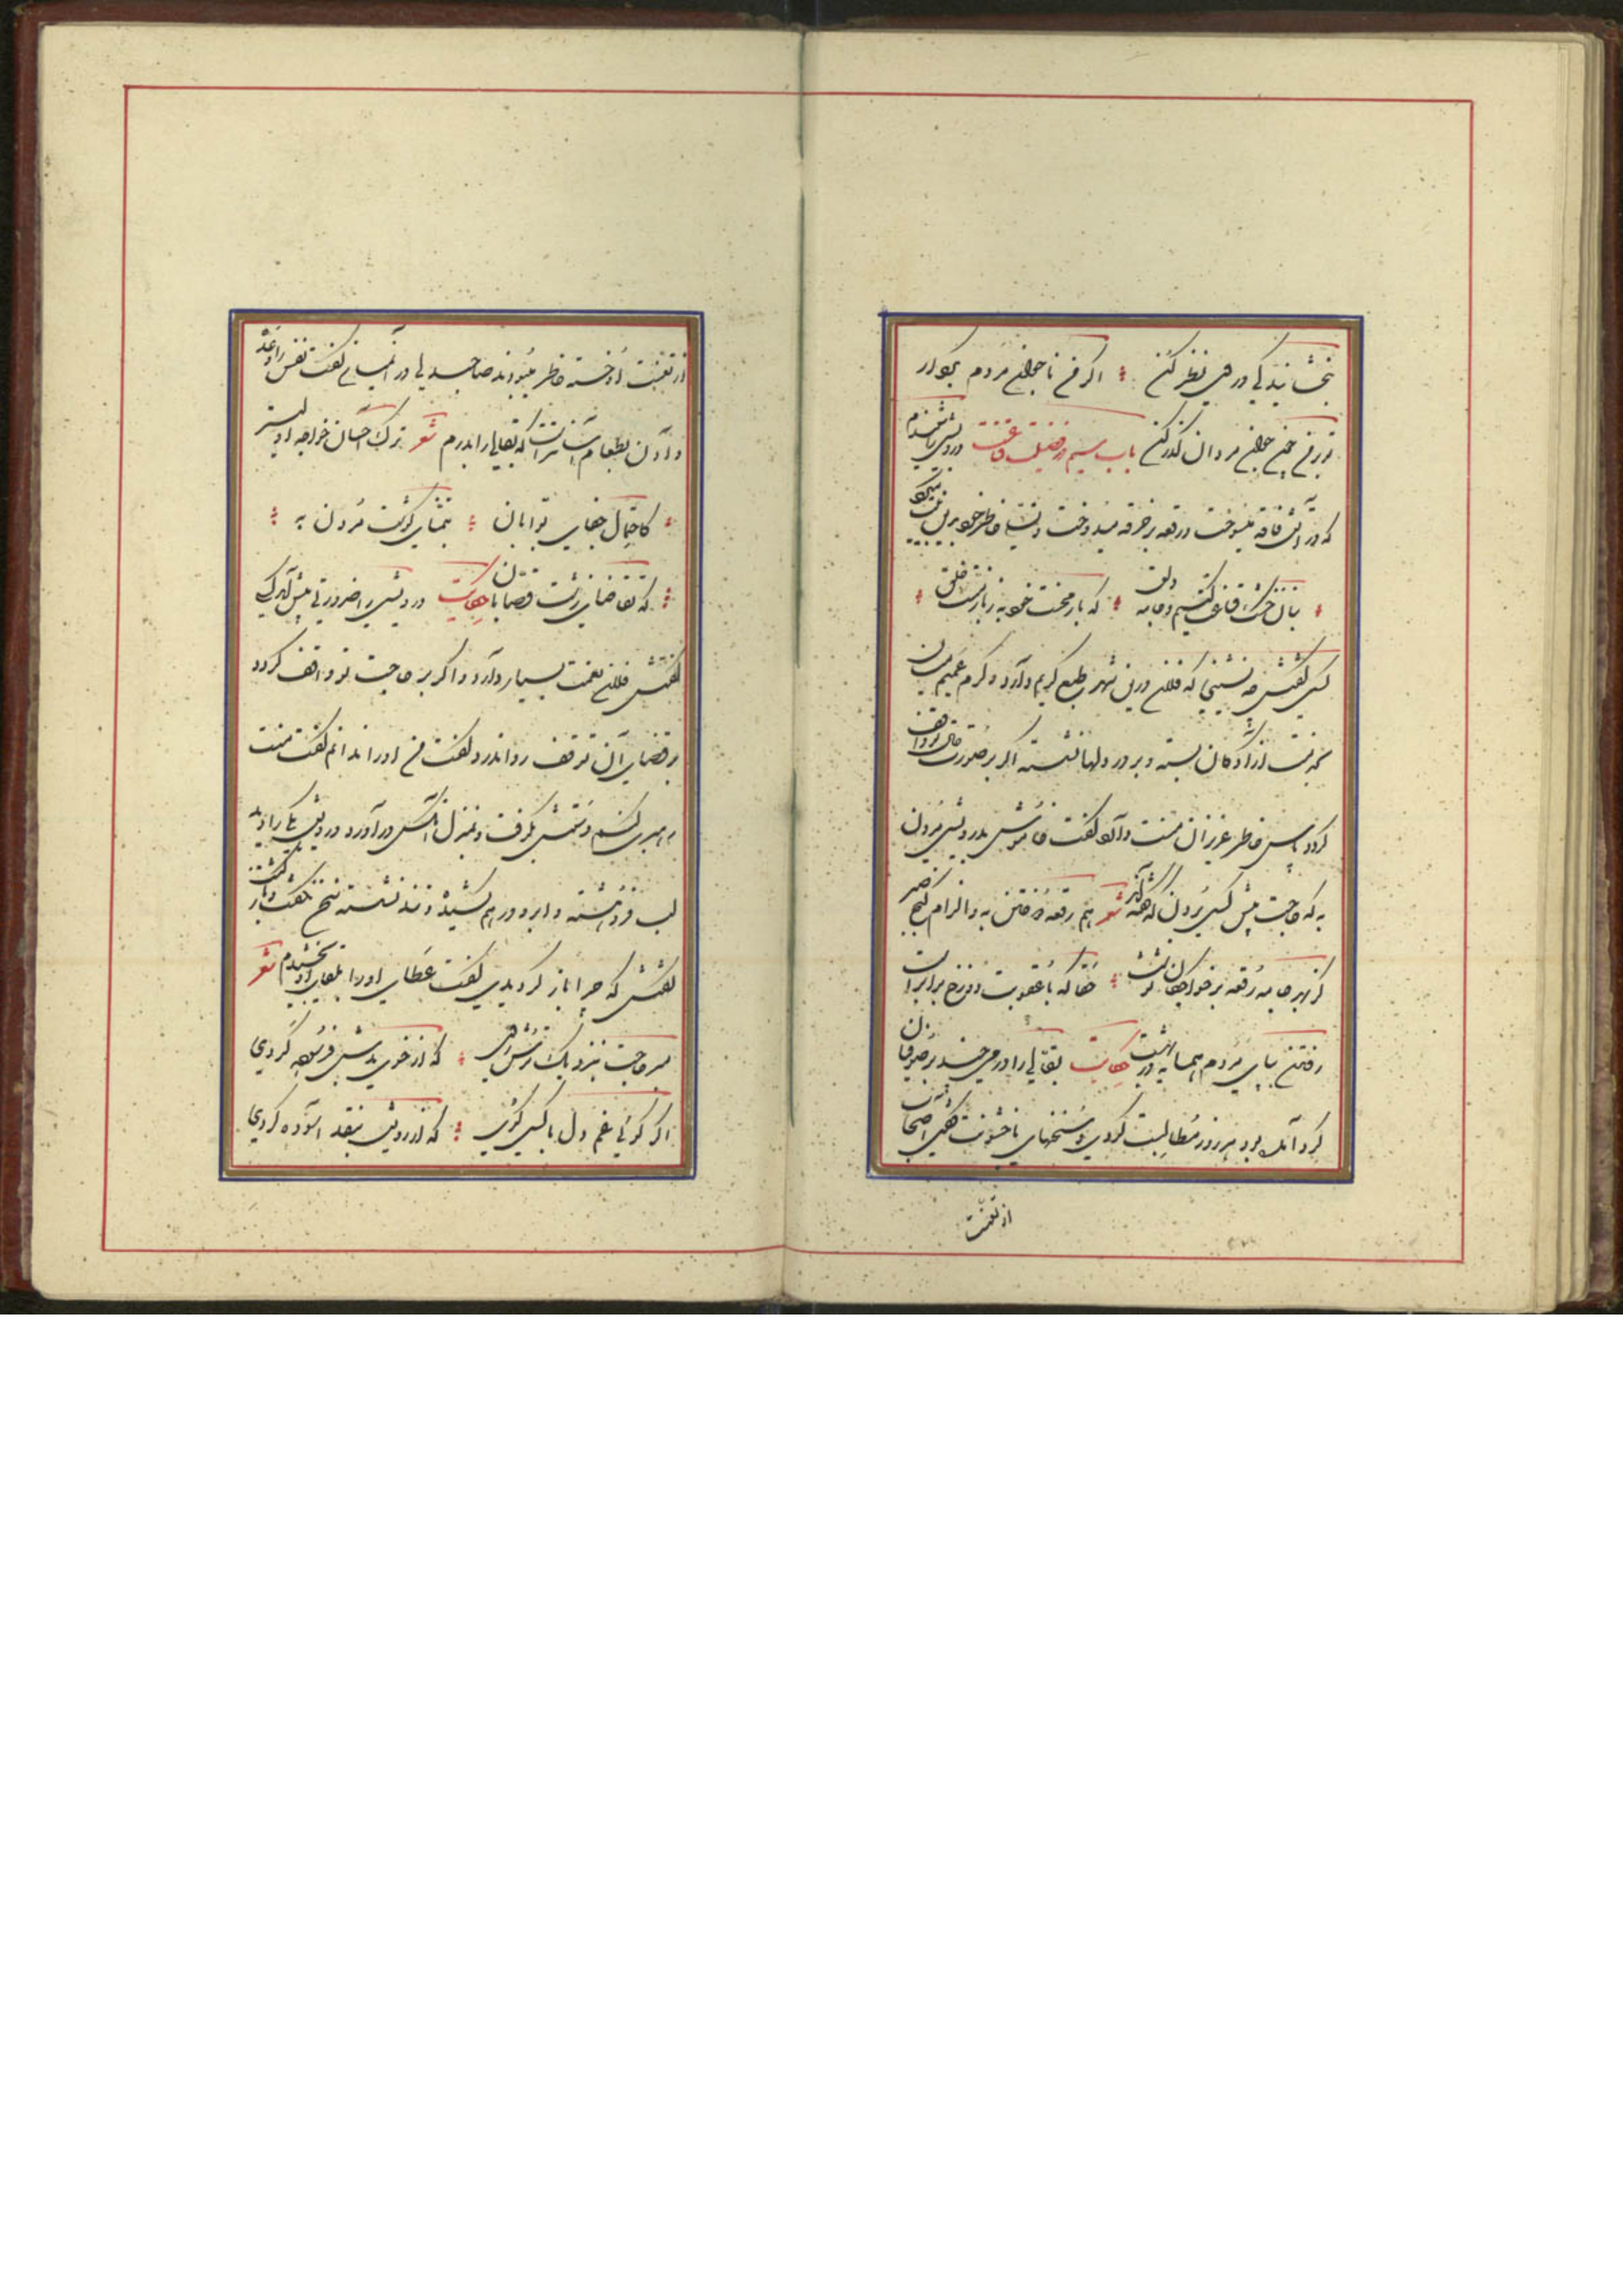 بخشایندگی در من نظر کن اگر من ناجوانمردم بکردار
تو بر من چون جوانمردان گذر کن باب سیم در فضیلت قناعت درویشی را شنیدم
که در آتش فاقه میسوخت و رقعه بر خرقه میدوخت و تسلی خاطر خود را میگفت
بنان خشک قناعت کنیم و جامه دلق که بار محنت خود به ز بار منت خلق
کسی گفتش چه نشینی که فلان درین شهر طبع کریم دارد و کرم عمیم میان
بخدمت آزادگان بسته و بر در دلها نشسته اگر بر صورت حال تو واقف
گردد پاس خاطر عزیزان منت دارد گفت خاموش بدرویشی مردن
به که حاجت پیش کسی بردن که گفته‌اند شعر هم رقعه دوختن به و الزام کنج صبر
کز بهر جامه رقعه بر خواجگان نوشت حقا که با عقوبت دوزخ برابر است
رفتن بپای مردم همسایه در بهشت حکایت بقالی را درمی چند بر صوفیان
گرد آمده بود هر روز مطالبت کردی و سخنهای با خشونت گفتی اصحاب
از تعنت
از تعنت او خسته خاطر میبودند صاحبدلی در آن میان گفت نفس را وعده
دادن بطعام آسانتر است که بقال را بدرم شعر ترک احسان خواجه اولیتر
کاحتمال جفای بوابان بتمنای گوشت مردن به
که تقاضای زشت قصابان حکایت درویشی را ضرورتی پیش آمد کسی
گفتش فلان نعمت بسیار دارد و اگر بر حاجت تو واقف گردد
در قضای آن توقف روا ندارد گفت من او را ندانم گفت منت
رهبری کنم دستش بگرفت و بمنزل آنکس درآورد درویش یکی را دید
لب فروهشته و ابرو درهم کشیده و تند نشسته سخن نگفت و بازگشت
گفتش که چرا باز گردیدی گفت عطای او را بلقای او بخشیدم شعر
مبر حاجت بنزدیک ترشروی که از خوی بدش فرسوده گردی
اگر گوئی غم دل با کسی گوی که از رویش بنقد آسوده گردی